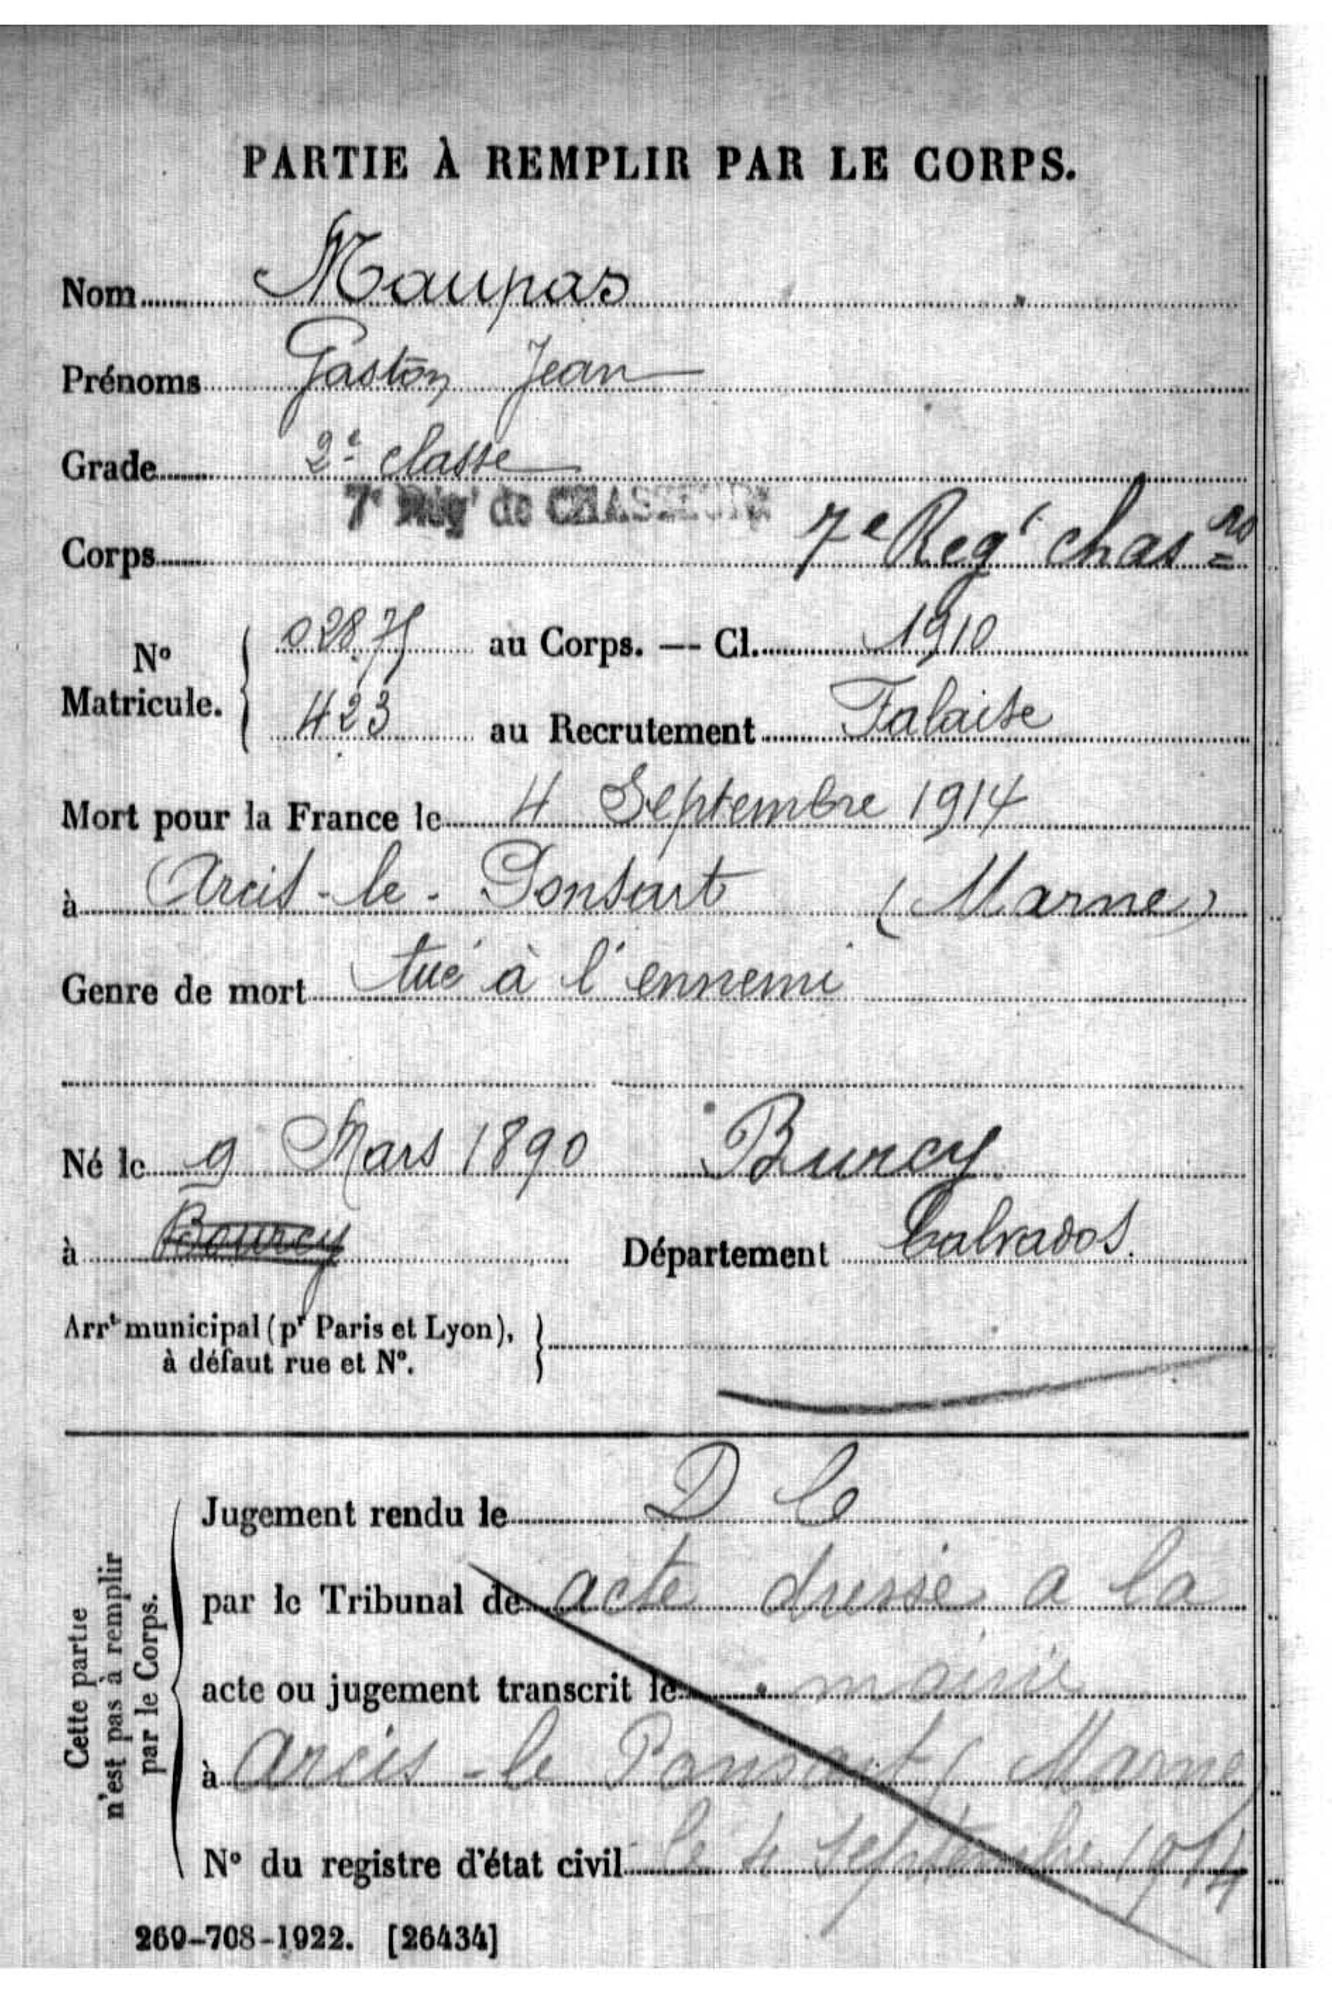 PARTIE À REMPLIR PAR LE CORPS.
Nom Maupas
Prénoms Gaston Jean
Grade 2e classe
7e Régt de CHASSEURS
Corps 7e Regt chasrs
N° Matricule. 02875 au Corps. — Cl. 1910
423 au Recrutement Falaise
Mort pour la France le 4 Septembre 1914
à Arcis-le-Ponsart (Marne)
Genre de mort tué à l'ennemi
Né le 9 Mars 1890 Burcy
à Bourcy Département Calvados.
Arrt municipal (pr Paris et Lyon),
à défaut rue et N°.
Cette partie
n'est pas à remplir
par le Corps.
Jugement rendu le D C
par le Tribunal de acte dressé a la
acte ou jugement transcrit le mairie
à Arcis-le Ponsart (Marne)
N° du registre d'état civil le 4 septembre 1914
269-708-1922. [26434]